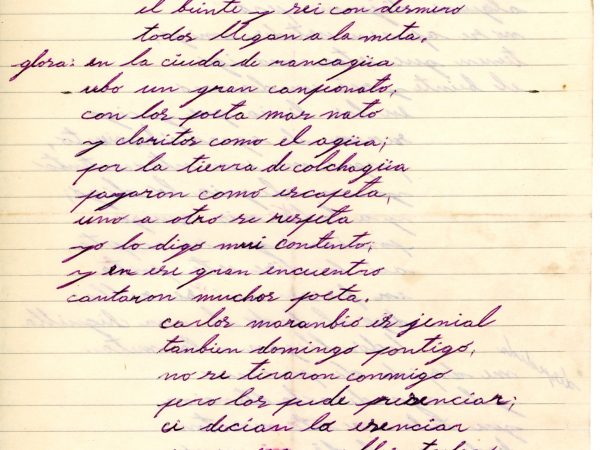 el beinte y sei con desmero
todos llegan a la meta.
glosa: en la ciuda de rancagüa
ubo un gran canpionato,
con los poeta mas nato
y claritos como el agüa;
por la tierra de colchagüa
pasaron como escapeta,
uno a otro se respeta
yo lo digo mui contento,
y en ese gran encuentro
cantaron muchos poeta.
carlos maranbio es jenial
tanbien domingo pontigo,
no se tiraron conmigo
pero los pude presenciar;
ci decian la esenciar